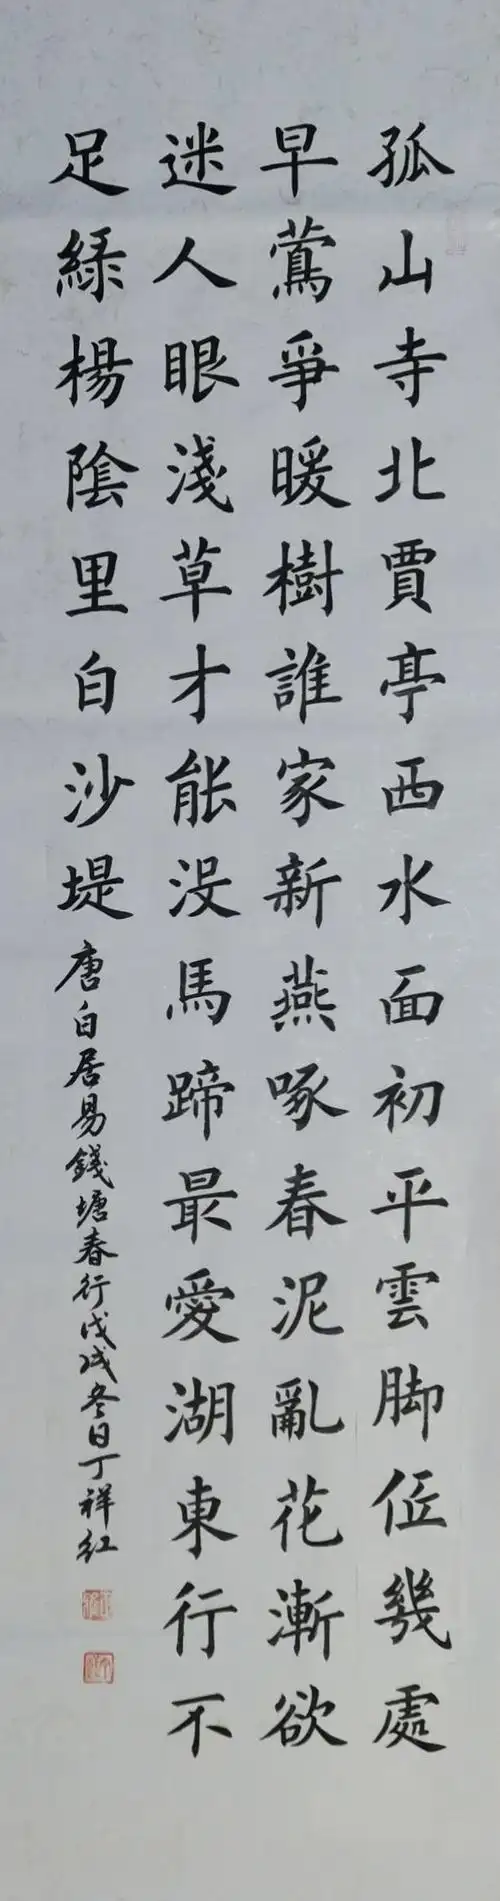 孤山寺北賈亭西水面初平雲脚低幾處
早鶯爭暖樹誰家新燕啄春泥亂花漸欲
迷人眼淺草才能没馬蹄最愛湖東行不
足緑楊陰里白沙堤唐白居易錢塘春行戊戌冬日丁祥红